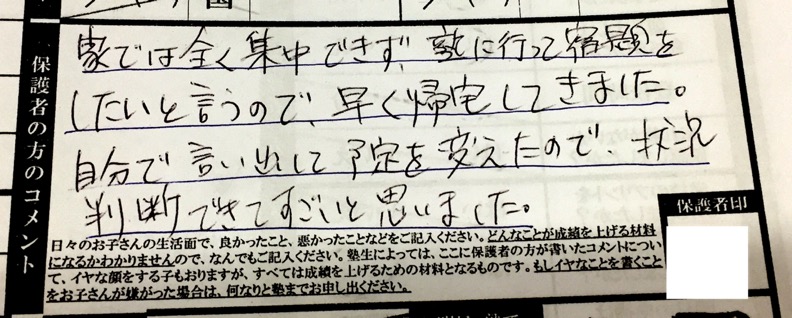 保護者の方のコメント
家では全く集中できず、塾に行って宿題を
したいと言うので、早く帰宅してきました。
自分で言い出して予定を変えたので、状況
判断できてすごいと思いました。
保護者印
日々のお子さんの生活面で、良かったこと、悪かったことなどをご記入ください。どんなことが成績を上げる材料
になるかわかりませんので、なんでもご記入ください。塾生によっては、ここに保護者の方が書いたコメントについ
て、イヤな顔をする子もおりますが、すべては成績を上げるための材料となるものです。もしイヤなことを書くこと
をお子さんが嫌がった場合は、何なりと塾までお申し出ください。